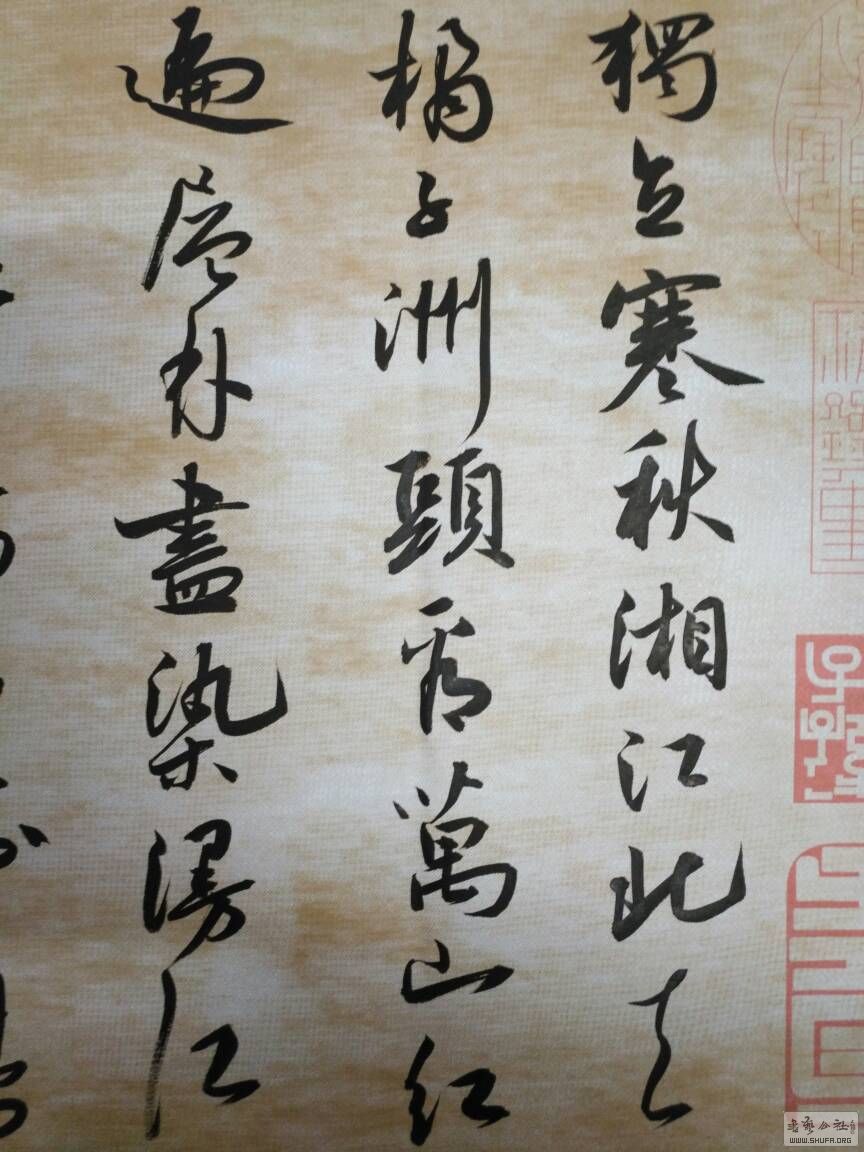 獨立寒秋湘江北去
橘子洲頭看萬山紅
遍層林盡染漫江
書藝公社
WWW.SHUFA.ORG